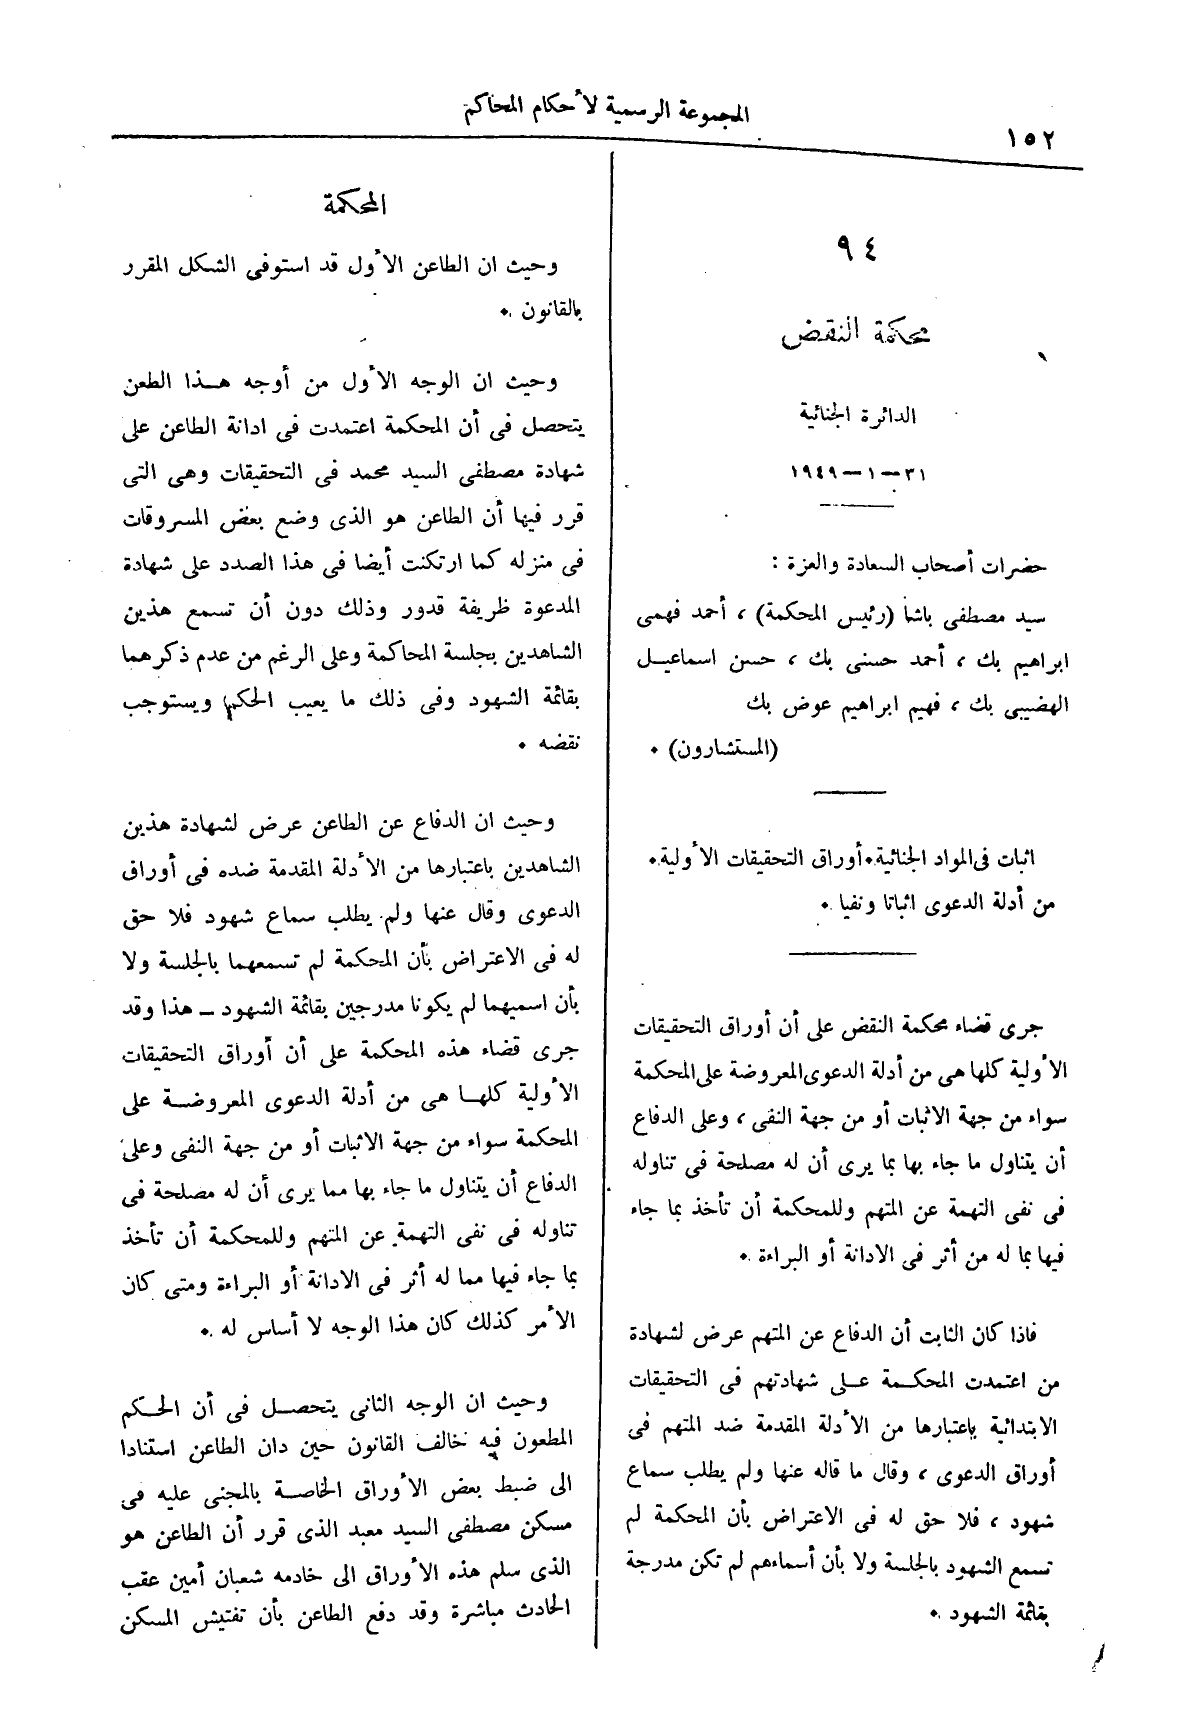 المجموعة الرسمية لأحكام المحاكم
١٥٢
٩٤
محكمة النقض
الدائرة الجنائية
٣١-١-١٩٤٩
حضرات أصحاب السعادة والعزة :
سيد مصطفى باشا (رئيس المحكمة) ، أحمد فهمى
ابراهيم بك ، أحمد حسنى بك ، حسن اسماعيل
الهضيبى بك ، فهيم ابراهيم عوض بك
(المستشارون) .
اثبات فى المواد الجنائية . أوراق التحقيقات الأولية .
من أدلة الدعوى اثباتا ونفيا .
جرى قضاء محكمة النقض على أن أوراق التحقيقات
الأولية كلها هى من أدلة الدعوى المعروضة على المحكمة
سواء من جهة الاثبات أو من جهة النفى ، وعلى الدفاع
أن يتناول ما جاء بها بما يرى أن له مصلحة فى تناوله
فى نفى التهمة عن المتهم وللمحكمة أن تأخذ بما جاء
فيها بما له من أثر فى الادانة أو البراءة .
فاذا كان الثابت أن الدفاع عن المتهم عرض لشهادة
من اعتمدت المحكمة على شهادتهم فى التحقيقات
الابتدائية باعتبارها من الأدلة المقدمة ضد المتهم فى
أوراق الدعوى ، وقال ما قاله عنها ولم يطلب سماع
شهود ، فلا حق له فى الاعتراض بأن المحكمة لم
تسمع الشهود بالجلسة ولا بأن أسماءهم لم تكن مدرجة
بقائمة الشهود .
المحكمة
وحيث ان الطاعن الأول قد استوفى الشكل المقرر
بالقانون .
وحيث ان الوجه الأول من أوجه هذا الطعن
يتحصل فى أن المحكمة اعتمدت فى ادانة الطاعن على
شهادة مصطفى السيد محمد فى التحقيقات وهى التى
قرر فيها أن الطاعن هو الذى وضع بعض المسروقات
فى منزله كما ارتكنت أيضا فى هذا الصدد على شهادة
المدعوة ظريفة قدور وذلك دون أن تسمع هذين
الشاهدين بجلسة المحاكمة وعلى الرغم من عدم ذكرهما
بقائمة الشهود وفى ذلك ما يعيب الحكم ويستوجب
نقضه .
وحيث ان الدفاع عن الطاعن عرض لشهادة هذين
الشاهدين باعتبارها من الأدلة المقدمة ضده فى أوراق
الدعوى وقال عنها ولم يطلب سماع شهود فلا حق
له فى الاعتراض بأن المحكمة لم تسمعهما بالجلسة ولا
بأن اسميهما لم يكونا مدرجين بقائمة الشهود – هذا وقد
جرى قضاء هذه المحكمة على أن أوراق التحقيقات
الأولية كلها هى من أدلة الدعوى المعروضة على
المحكمة سواء من جهة الاثبات أو من جهة النفى وعلى
الدفاع أن يتناول ما جاء بها مما يرى أن له مصلحة فى
تناوله فى نفى التهمة عن المتهم وللمحكمة أن تأخذ
بما جاء فيها مما له أثر فى الادانة أو البراءة ومتى كان
الأمر كذلك كان هذا الوجه لا أساس له .
وحيث ان الوجه الثانى يتحصل فى أن الحكم
المطعون فيه خالف القانون حين دان الطاعن استنادا
الى ضبط بعض الأوراق الخاصة بالمجنى عليه فى
مسكن مصطفى السيد معبد الذى قرر أن الطاعن هو
الذى سلم هذه الأوراق الى خادمه شعبان أمين عقب
الحادث مباشرة وقد دفع الطاعن بأن تفتيش المسكن